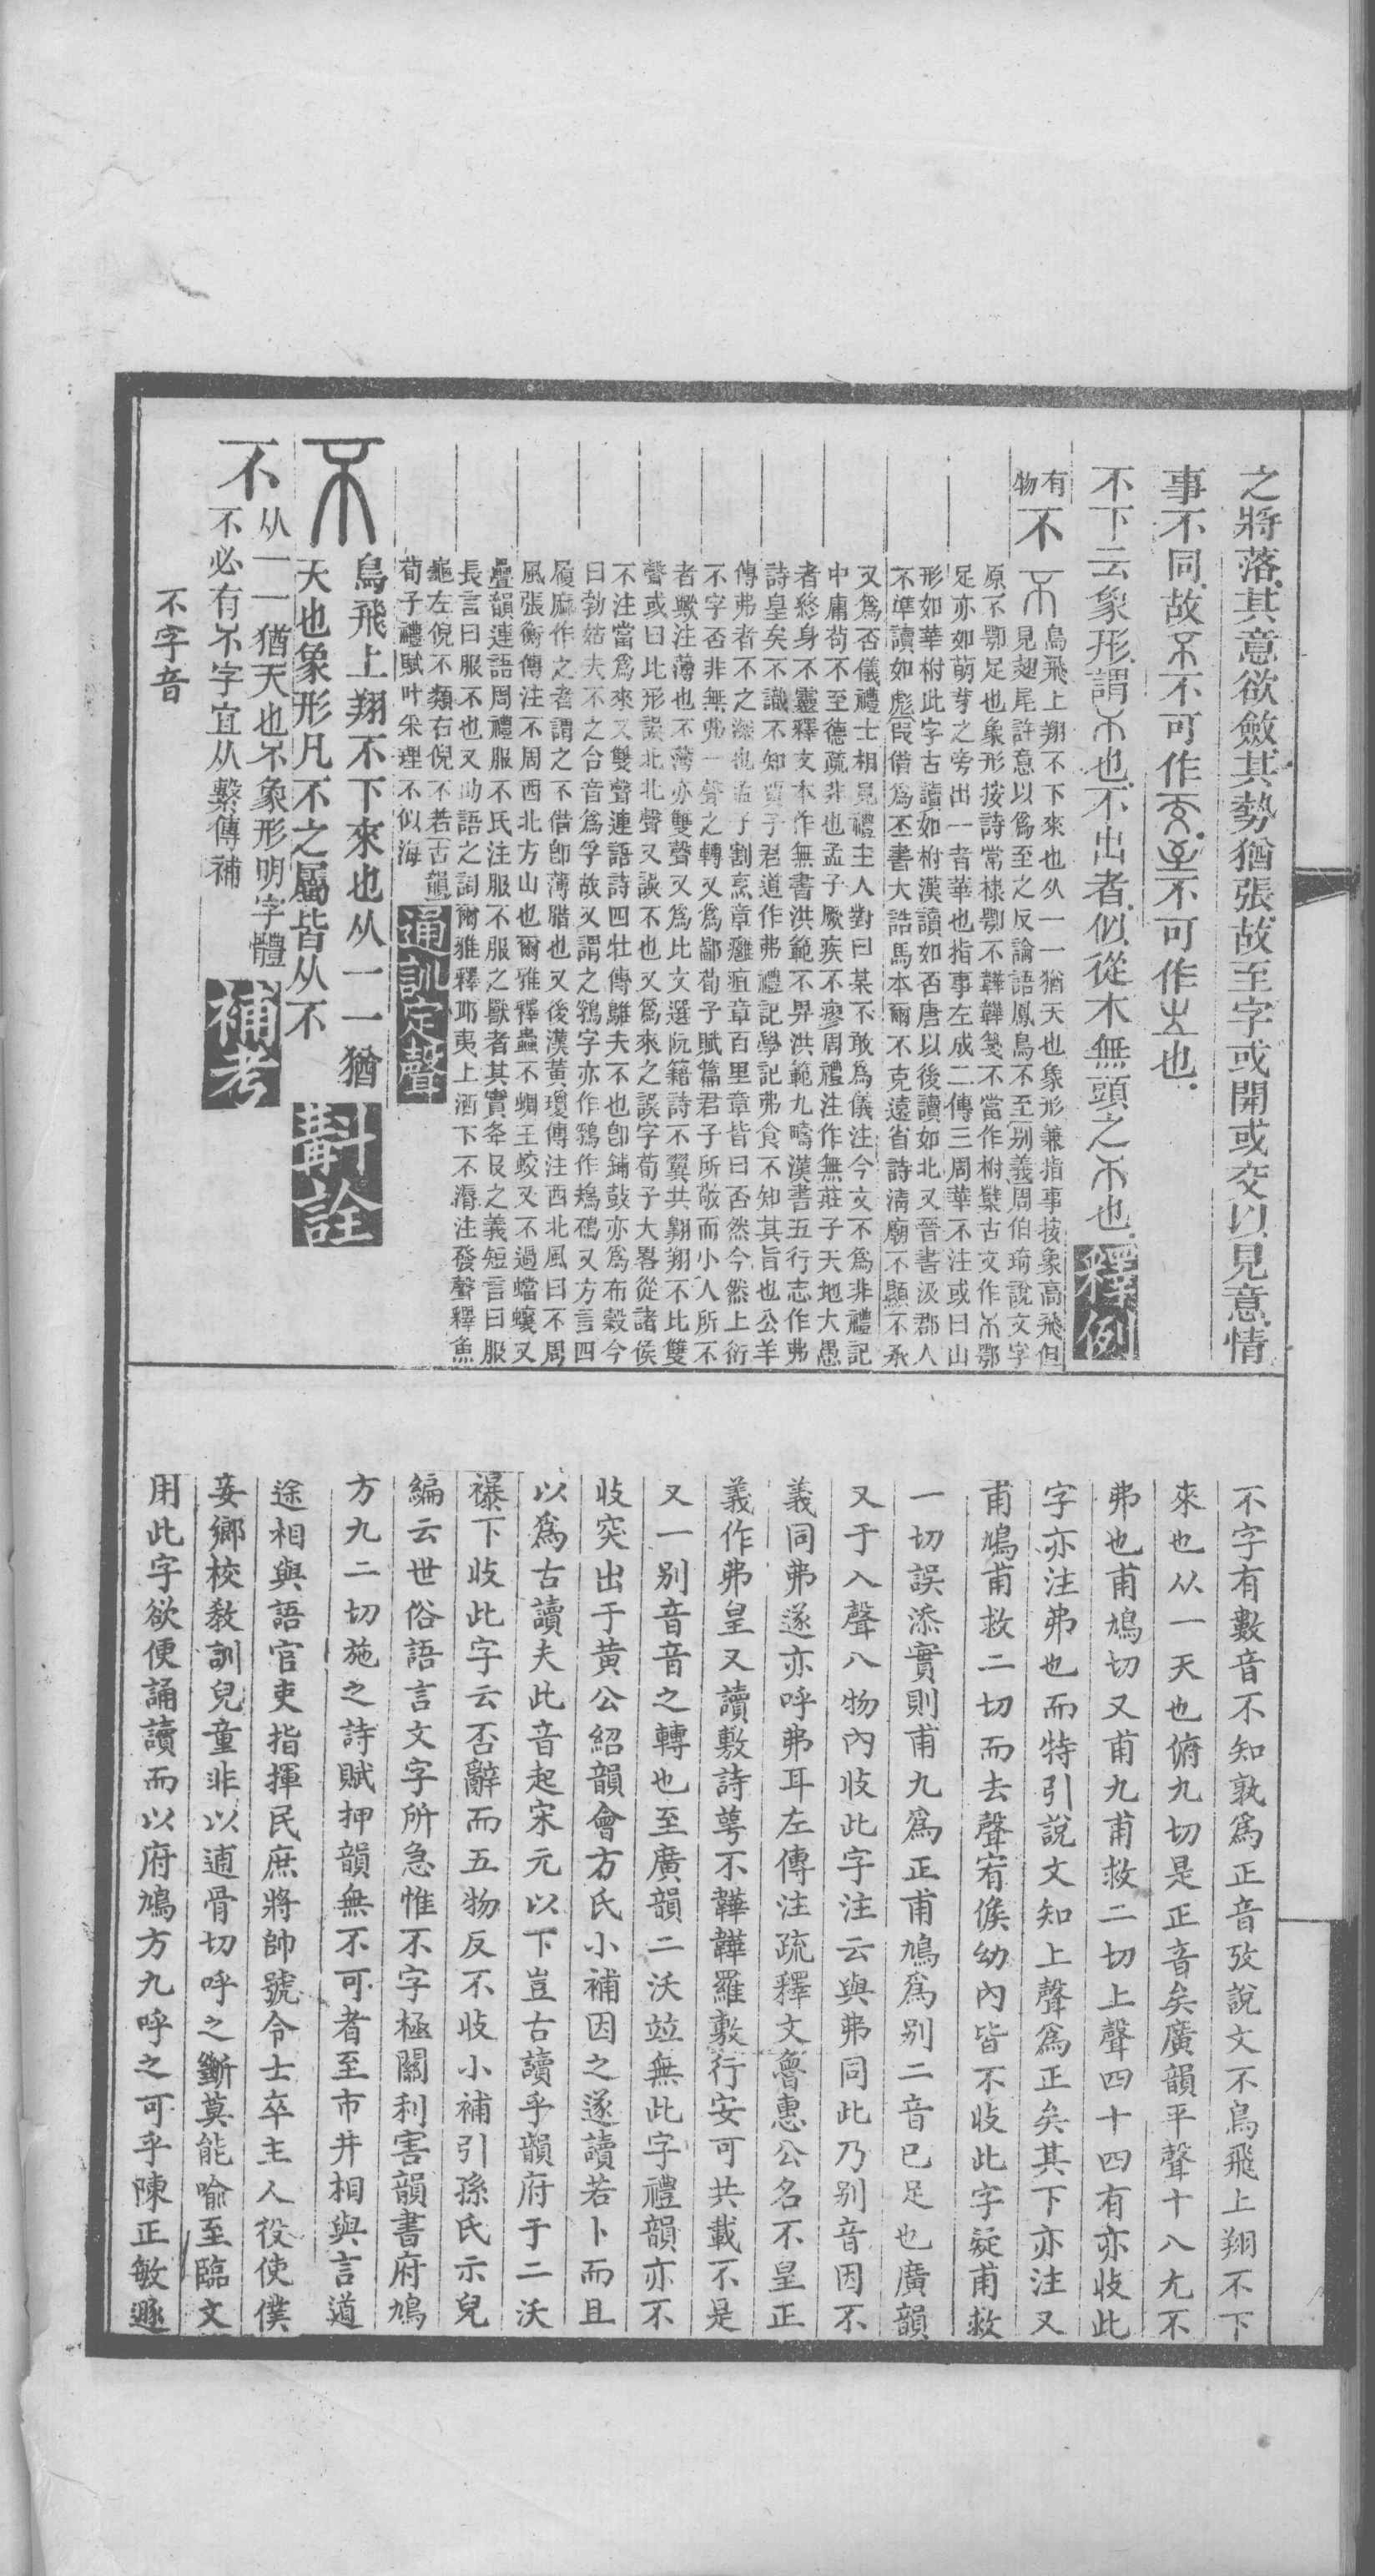 之將落其意欲斂其勢猶張故至字或開或交以見意情
事不同故不可作不可作也
不下云象形謂也不出者似從木無頭之也釋例
有物不鳥飛上翔不下來也从一一猶天也象形兼指事按象高飛但
見翅尾許意以爲至之反論語鳳鳥不至別義周伯琦說文字
原不鄂足也象形按詩常棣鄂不韡韡箋不當作柎檗古文作鄂
足亦如萌芽之旁出一者華也指事左成二傳三周華不注或曰山
形如華柎此字古讀如柎漢讀如否唐以後讀如北又晉書汲郡人
不準讀如彪假借爲丕書大誥馬本爾不克遠省詩淸廟不顯不承
又爲否儀禮士相見禮主人對曰某不敢爲儀注今文不爲非禮記
中庸苟不至德疏非也孟子厥疾不瘳周禮注作無莊子天地大愚
者終身不靈釋文本作無書洪範不畀洪範九疇漢書五行志作弗
詩皇矣不識不知賈子君道作弗禮記學記弗食不知其旨也公羊
傳弗者不之深也孟子割烹章癰疽章百里章皆曰否然今然上衍
不字否非無弗一聲之轉又爲鄙荀子賦篇君子所敬而小人所不
者歟注薄也不薄亦雙聲又爲比文選阮籍詩不翼共翺翔不比雙
聲或曰比形誤北北聲又誤不也又爲來之誤字荀子大畧從諸侯
不注當爲來又雙聲連語詩四牡傳鵻夫不也卽鋪鼓亦爲布穀今
曰勃姑夫不之合音爲孚故又謂之鶉字亦作鶉作鳺鴀又方言四
屨麻作之者謂之不借卽薄腊也又後漢黃瓊傳注西北風曰不周
風張衡傳注不周西北方山也爾雅釋蟲不蜩王蚥又不過蟷蠰又
疊韻連語周禮服不氏注服不服之獸者其實夅𠬝之義短言曰服
長言曰服不也又助語之詞爾雅釋邱夷上洒下不漘注發聲釋魚
龜左倪不類右倪不若古韻通訓定聲
荀子禮賦叶采理不似海
不鳥飛上翔不下來也从一一猶
天也象形凡不之屬皆从不斠詮
不从一一猶天也不象形明字體
不必有不字宜从繫傳補補考
不字音
不字有數音不知孰爲正音攷說文不鳥飛上翔不下
來也从一天也俯九切是正音矣廣韻平聲十八尤不
弗也甫鳩切又甫九甫救二切上聲四十四有亦收此
字亦注弗也而特引說文知上聲爲正矣其下亦注又
甫鳩甫救二切而去聲宥候幼內皆不收此字疑甫救
一切誤添實則甫九爲正甫鳩爲別二音已足也廣韻
又于入聲八物內收此字注云與弗同此乃別音因不
義同弗遂亦呼弗耳左傳注疏釋文魯惠公名不皇正
義作弗皇又讀敷詩萼不韡韡羅敷行安可共載不是
又一別音音之轉也至廣韻二沃竝無此字禮韻亦不
收突出于黃公紹韻會方氏小補因之遂讀若卜而且
以爲古讀夫此音起宋元以下豈古讀乎韻府于二沃
襮下收此字云否辭而五物反不收小補引孫氏示兒
編云世俗語言文字所急惟不字極關利害韻書府鳩
方九二切施之詩賦押韻無不可者至市井相與言道
途相與語官吏指揮民庶將帥號令士卒主人役使僕
妾鄉校敎訓兒童非以逋骨切呼之斷莫能喻至臨文
用此字欲便誦讀而以府鳩方九呼之可乎陳正敏遯